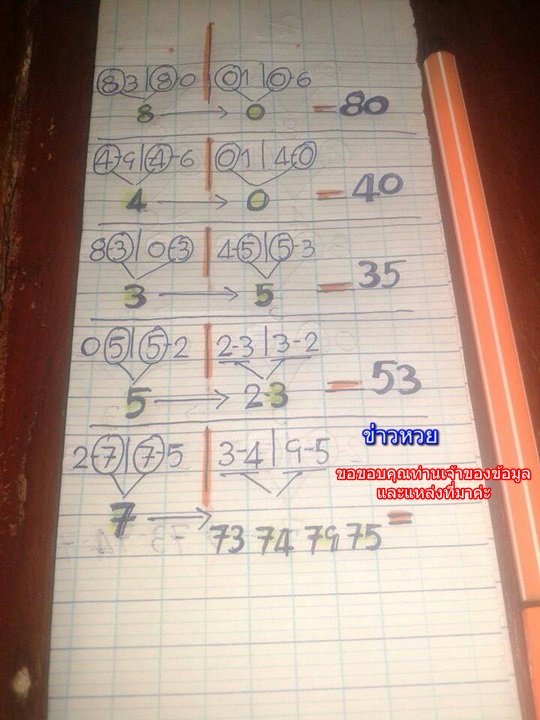 83|80 | 01|0-6
8 → 0 = 80
4-9|4-6 | 01|40
4 → 0 = 40
8-3|0-3 | 4-5|5-3
3 → 5 = 35
0 5|5-2 | 2-3|3-2
5 → 2-3 = 53
2-7|7-5 | 3-4|9-5
7 → 73 74 79 75 =
ข่าวหวย
ขอขอบคุณท่านเจ้าของข้อมูล
และแหล่งที่มาค่ะ